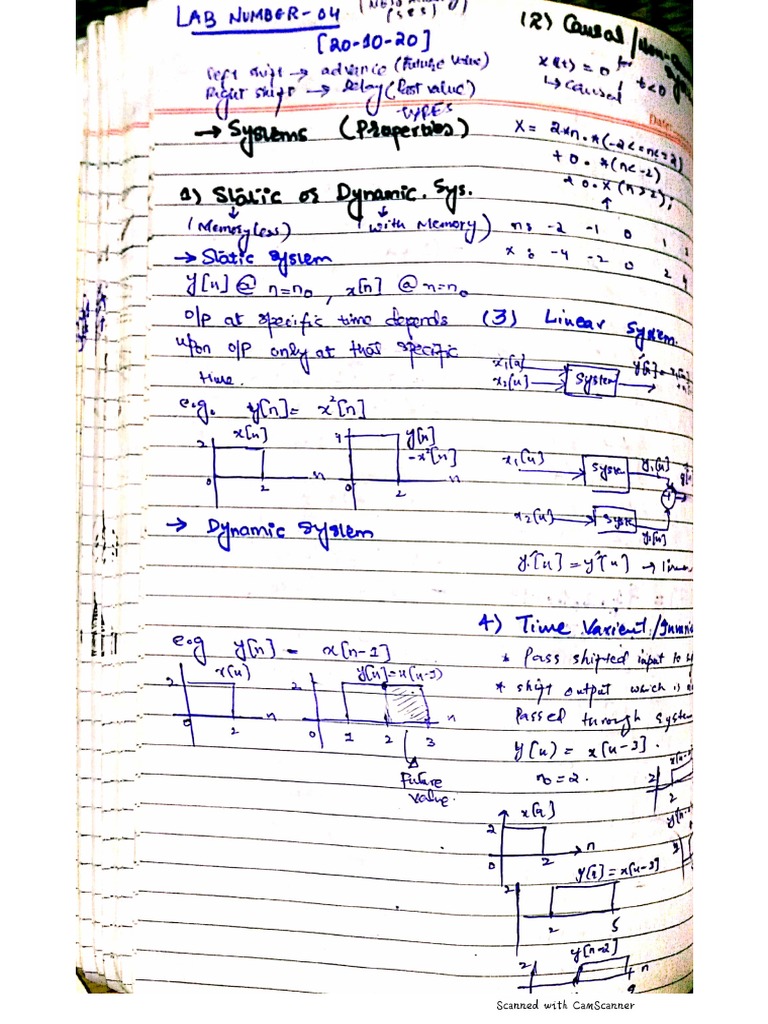 LAB NUMBER-04
[20-10-20]
Left shift → advance (Future value)
Right shift → Delay (Past value)
TYPES
→ Systems (Properties)
1) Static or Dynamic Sys.
(Memoryless) (with Memory)
→ Static system
y[n] @ n=n₀, x[n] @ n=n₀
O/P at specific time depends
upon O/P only at that specific
time.
e.g. y[n] = x²[n]
2 x[n] n 0 2
4 y[n] -x²[n] n 0 2
→ Dynamic System
e.g y[n] - x[n-1]
2 x(n) n 0 2
2 n 0 1 2 3
Future
value.
(2) Causal /
x(t) = 0 for t<0
↳ causal
Date:
X = 2*n.*(-2<=n<=2)
+0.*(n<-2)
+0.*(n>2);
↑
n: -2 -1 0 1
x: -4 -2 0 2 4
(3) Linear System.
x₁[n]
x₂[n] System
x₁[n] Syste y₁[n]
x₂[n] Syste y₂[n]
4) Time Varient/
* Pass shifted input to
* shift output which is
Passed through system
y(n) = x[n-3].
n₀=2.
2 x[n] n 0 2
2 y[n] = x[n-3] 2 5
2 y[n-2] n
Scanned with CamScanner